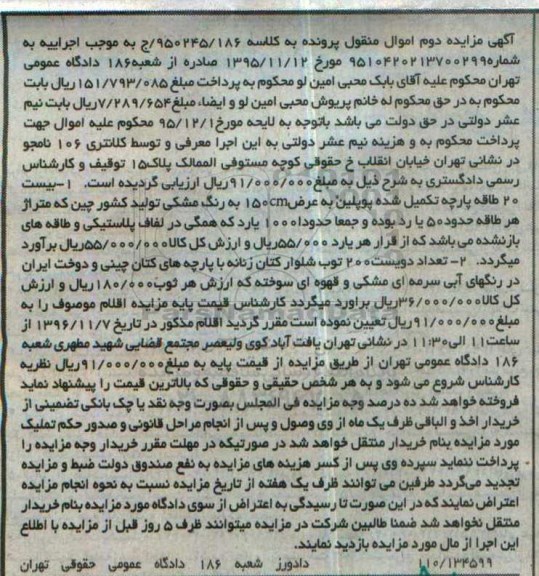 آگهی مزایده دوم اموال منقول پرونده به کلاسه ۹۵۰۲۴۵/۱۸۶/ج به موجب اجراییه به
شماره۹۵۱۰۴۲۰۲۱۳۷۰۰۲۹۹ مورخ ۱۳۹۵/۱۱/۱۲ صادره از شعبه۱۸۶ دادگاه عمومی
تهران محکوم علیه آقای بابک محبی امین لو محکوم به پرداخت مبلغ۱۵۱/۷۹۳/۰۸۵ریال بابت
محکوم به در حق محکوم له خانم پریوش محبی امین لو و ایضاء مبلغ۷/۲۸۹/۶۵۴ریال بابت نیم
عشر دولتی در حق دولت می باشد باتوجه به لایحه مورخ۹۵/۱۲/۱ محکوم علیه اموال جهت
پرداخت محکوم به و هزینه نیم عشر دولتی به این اجرا معرفی و توسط کلانتری ۱۰۶ نامجو
در نشانی تهران خیابان انقلاب خ حقوقی کوچه مستوفی الممالک پلاک۱۵ توقیف و کارشناس
رسمی دادگستری به شرح ذیل به مبلغ۹۱/۰۰۰/۰۰۰ریال ارزیابی گردیده است. ۱-بیست
۲۰ طاقه پارچه تکمیل شده پوپلین به عرض۱۵۰cm به رنگ مشکی تولید کشور چین که متراژ
هر طاقه حدود۵۰ یا رد بوده و جمعا حدودا۱۰۰۰ یارد که همگی در لفاف پلاستیکی و طاقه های
بازنشده می باشد که از قرار هر یارد ۵۵/۰۰۰ریال و ارزش کل کالا۵۵/۰۰۰/۰۰۰ریال برآورد
میگردد. ۲- تعداد دویست۲۰۰ توب شلوار کتان زنانه با پارچه های کتان چینی و دوخت ایران
در رنگهای آبی سرمه ای مشکی و قهوه ای سوخته که ارزش هر ثوب۱۸۰/۰۰۰ریال و ارزش
کل کالا۳۶/۰۰۰/۰۰۰ریال براورد میگردد کارشناس قیمت پایه مزایده اقلام موصوف را به
مبلغ۹۱/۰۰۰/۰۰۰ریال تعیین نموده است مقرر گردید اقلام مذکور در تاریخ ۱۳۹۶/۱۱/۷ از
ساعت۱۱ الی۱۱:۳۰ در نشانی تهران یافت آباد کوی ولیعصر مجتمع قضایی شهید مطهری شعبه
۱۸۶ دادگاه عمومی تهران از طریق مزایده از قیمت پایه به مبلغ۹۱/۰۰۰/۰۰۰ریال نظریه
کارشناس شروع می شود و به هر شخص حقیقی و حقوقی که بالاترین قیمت را پیشنهاد نماید
فروخته خواهد شد ده درصد وجه مزایده فی المجلس بصورت وجه نقد یا چک بانکی تضمینی از
خریدار اخذ و الباقی ظرف یک ماه از وی وصول و پس از انجام مراحل قانونی و صدور حکم تملیک
مورد مزایده بنام خریدار منتقل خواهد شد در صورتیکه در مهلت مقرر خریدار وجه مزایده را
پرداخت ننماید سپرده وی پس از کسر هزینه های مزایده به نفع صندوق دولت ضبط و مزایده
تجدید می‌گردد طرفین می توانند ظرف یک هفته از تاریخ مزایده نسبت به نحوه انجام مزایده
اعتراض نمایند که در این صورت تا رسیدگی به اعتراض از سوی دادگاه مورد مزایده بنام خریدار
منتقل نخواهد شد ضمنا طالبین شرکت در مزایده میتوانند ظرف ۵ روز قبل از مزایده با اطلاع
این اجرا از مال مورد مزایده بازدید نمایند.
۱۱۰/۱۳۴۵۹۹ دادورز شعبه ۱۸۶ دادگاه عمومی حقوقی تهران